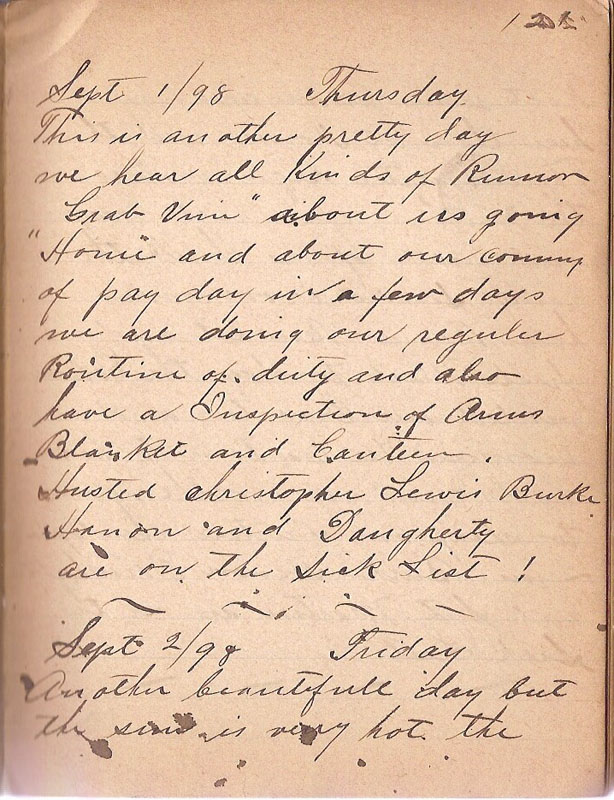 Sept 1/98 Thursday
This is another pretty day
we hear all Kinds of Rumor
Grab Vine" about us going
"Home" and about our coming
of pay day in a few days
we are doing our regular
Routine of duty and also
have a Inspection of Arms
Blanket and Canteen.
Husted Christopher Lewis Burke
Hanon and Daugherty
are on the Sick List!
Sept 2/98 Friday
Another beautifull day but
the sun is very hot the